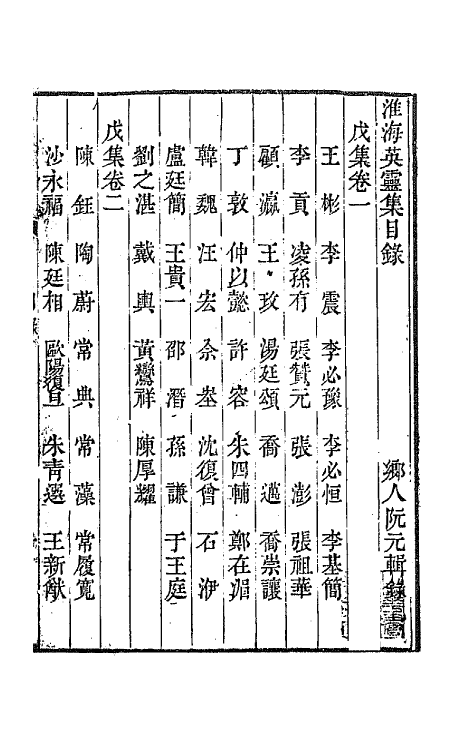 淮海英靈集目錄 鄉人阮元輯錄
戊集卷一
王彬 李震 李必豫 李必恒 李基簡
李貢 凌孫有 張贊元 張澎 張祖華
顧瀛 王玫 湯廷頌 喬邁 喬崇讓
丁敦 仲以懿 許容 朱四輔 鄭在湄
韓魏 汪宏 佘坴 沈復曾 石泙
盧廷簡 王貴一 邵潛 孫謙 于王庭
劉之湛 戴輿 黃鸞祥 陳厚耀
戊集卷二
陳鈺 陶蔚 常典 常藻 常履寬
沙永福 陳廷相 歐陽復旦 朱青選 王新猷